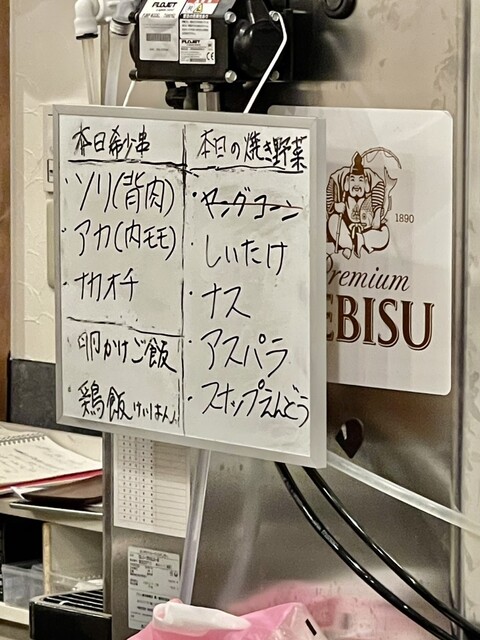 FLOJET
本日希少串
・ソリ(背肉)
・アカ(内モモ)
・ナカオチ
・卵かけご飯
・鶏飯 けいはん
本日の焼き野菜
・ヤングコーン
・しいたけ
・ナス
・アスパラ
・スナップえんどう
1890
Premium
EBISU